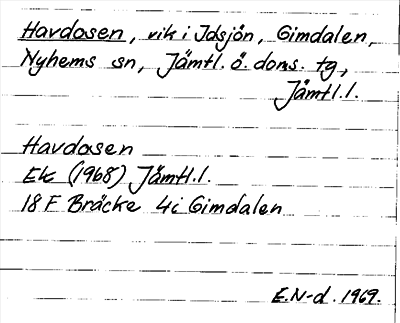 Havdosen, vik i Idsjön, Gimdalen,
Nyhems sn, Jämtl. ö. doms. tg,
Jämtl.l.
Havdosen
Ek (1968) Jämtl.l.
18 F Bräcke 4i Gimdalen
E.N-d. 1969.